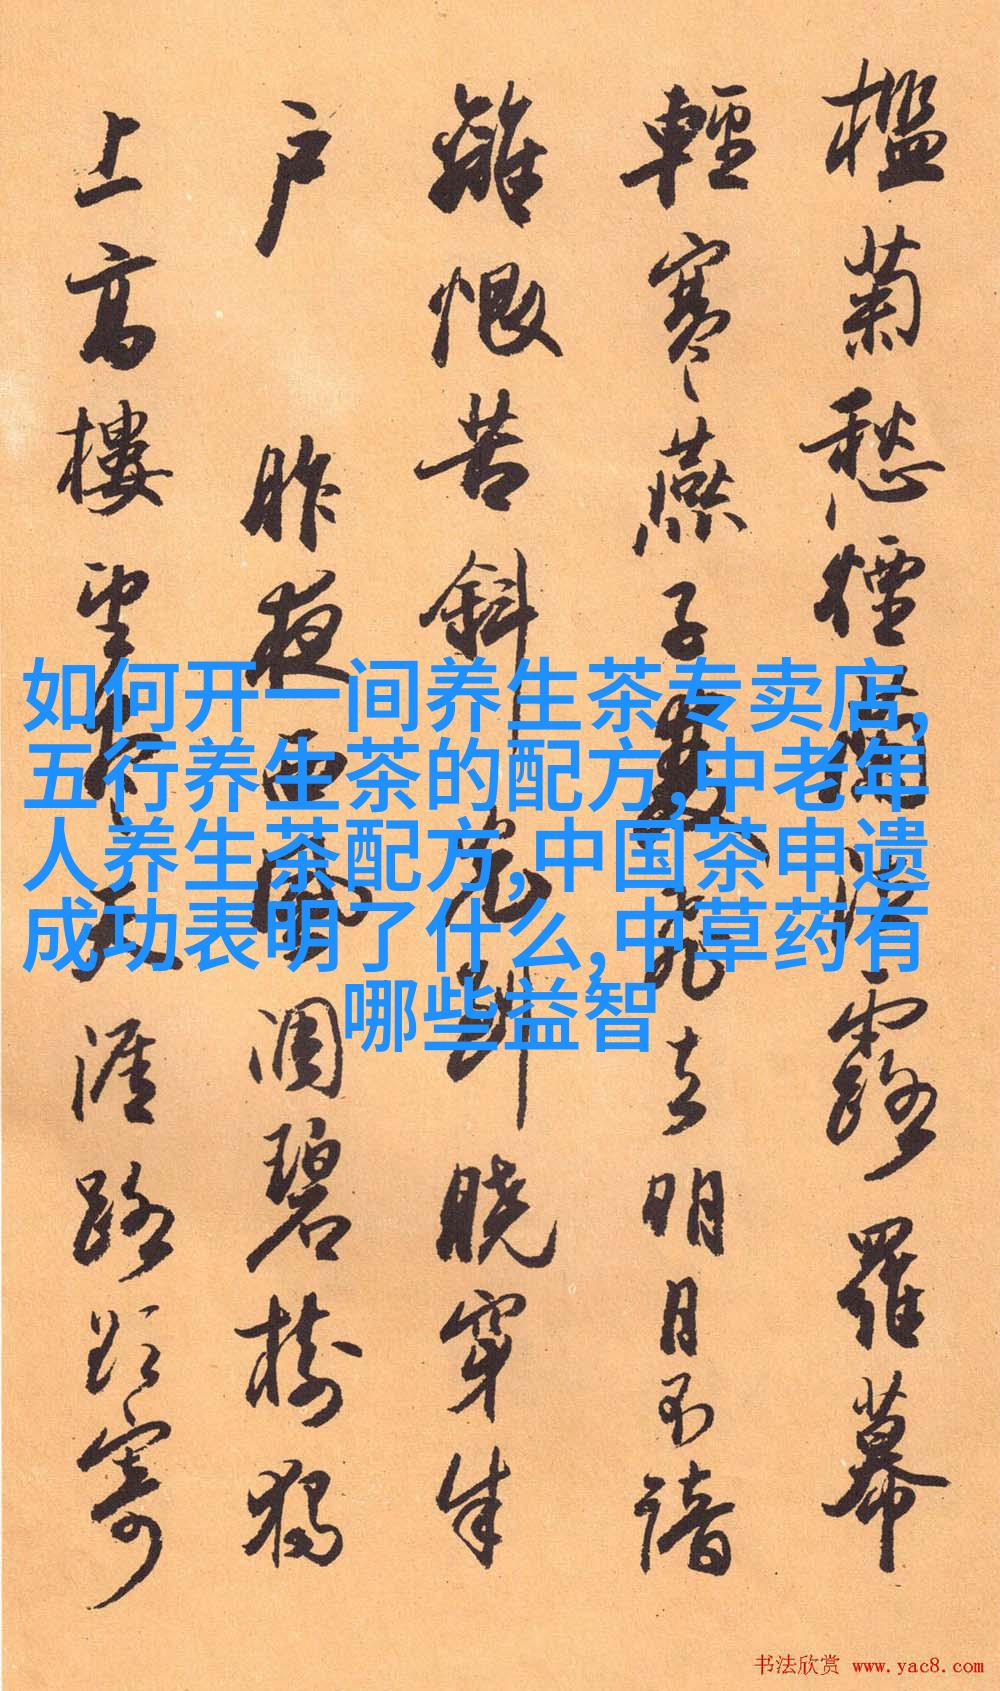 檻菊愁煙蘭泣露羅幕
輕寒燕子雙飛去明月不諳
離恨苦斜光到曉穿朱
户 昨夜西風凋碧樹獨
上高樓望盡天涯路欲寄
如何开一间养生茶专卖店,
五行养生茶的配方,中老年
人养生茶配方,中国茶申遗
成功表明了什么,中草药有
哪些益智
书法欣赏 www.yac8.com